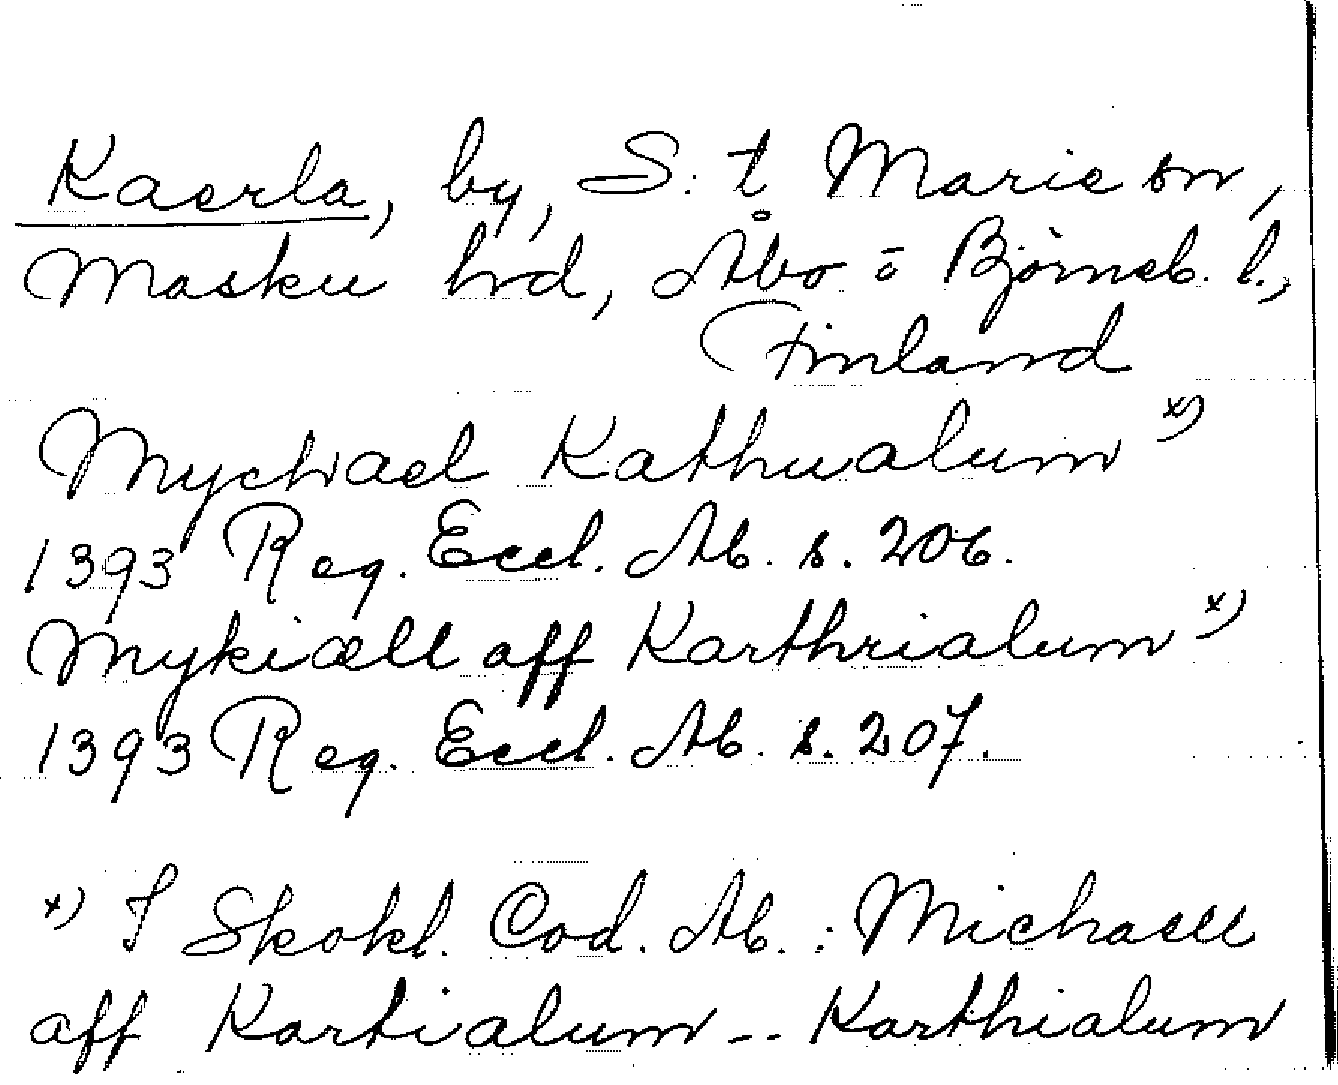 Kaerla, by, S:t Marie sn,
Masku hrd, Åbo ō Björneb. l.,
Finland
Mychael Kathualum x)
1393 Reg. Eccl. Ab. s. 206.
Mykiæll aff Karthrialum x)
1393 Reg. Eccl. Ab. s. 207.
x) I Skokl. Cod. Ab.: Michaell
aff Kartialum -- Karthialum